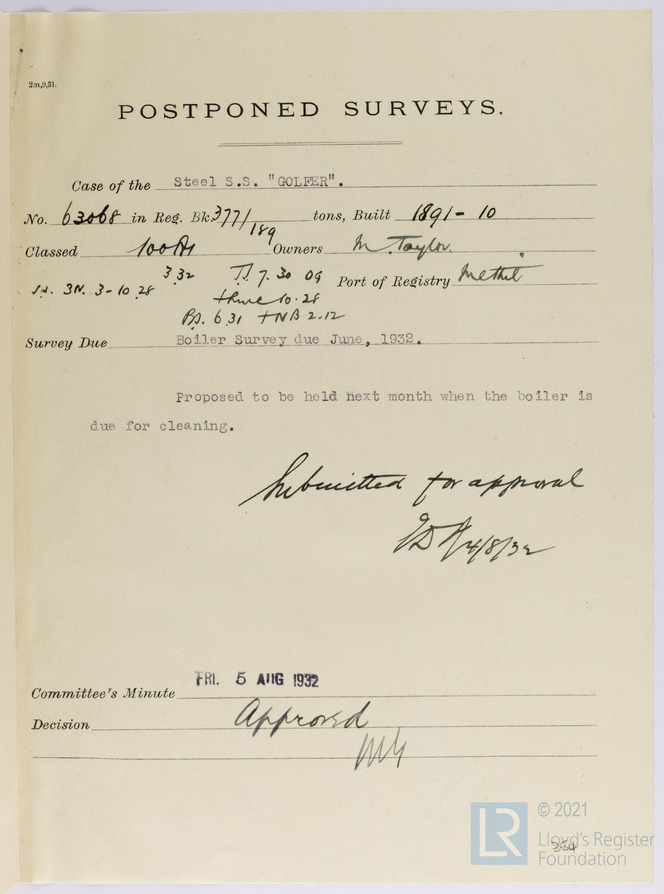 2m,9,31.
POSTPONED SURVEYS.
Case of the Steel S.S. "GOLFER".
No. 63068 in Reg. Bk 377/189 tons, Built 1891-10
Classed 100A1 Owners M. Taylor.
3.32 7.30 09 Port of Registry Methil
3N. 3-10.28
10.28
BS. 6.31 +NB 2.12
Survey Due Boiler Survey due June, 1932.
Proposed to be held next month when the boiler is
due for cleaning.
Submitted for approval
4/8/32
Committee's Minute FRI. 5 AUG 1932
Decision Approved
LR © 2021
Lloyd's Register
Foundation
354